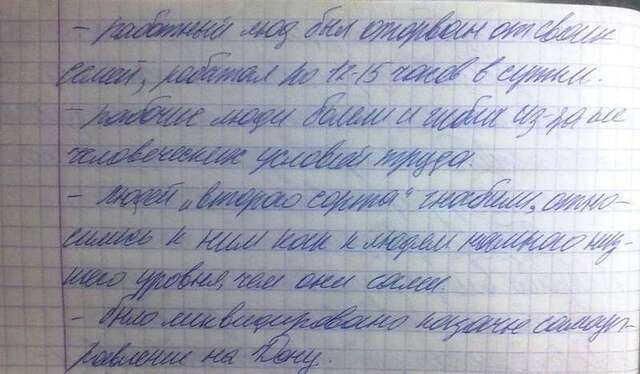 - работный люд был оторван от своих
семей, работал по 12-15 часов в сутки.
- рабочие люди болели и гибли из-за не
человеческих условий труда.
- людей „второго сорта" гнобили, отно-
сились к ним как к людям намного низ-
шего уровня, чем они сами.
- было ликвидировано казачье самоуп-
равление на Дону.